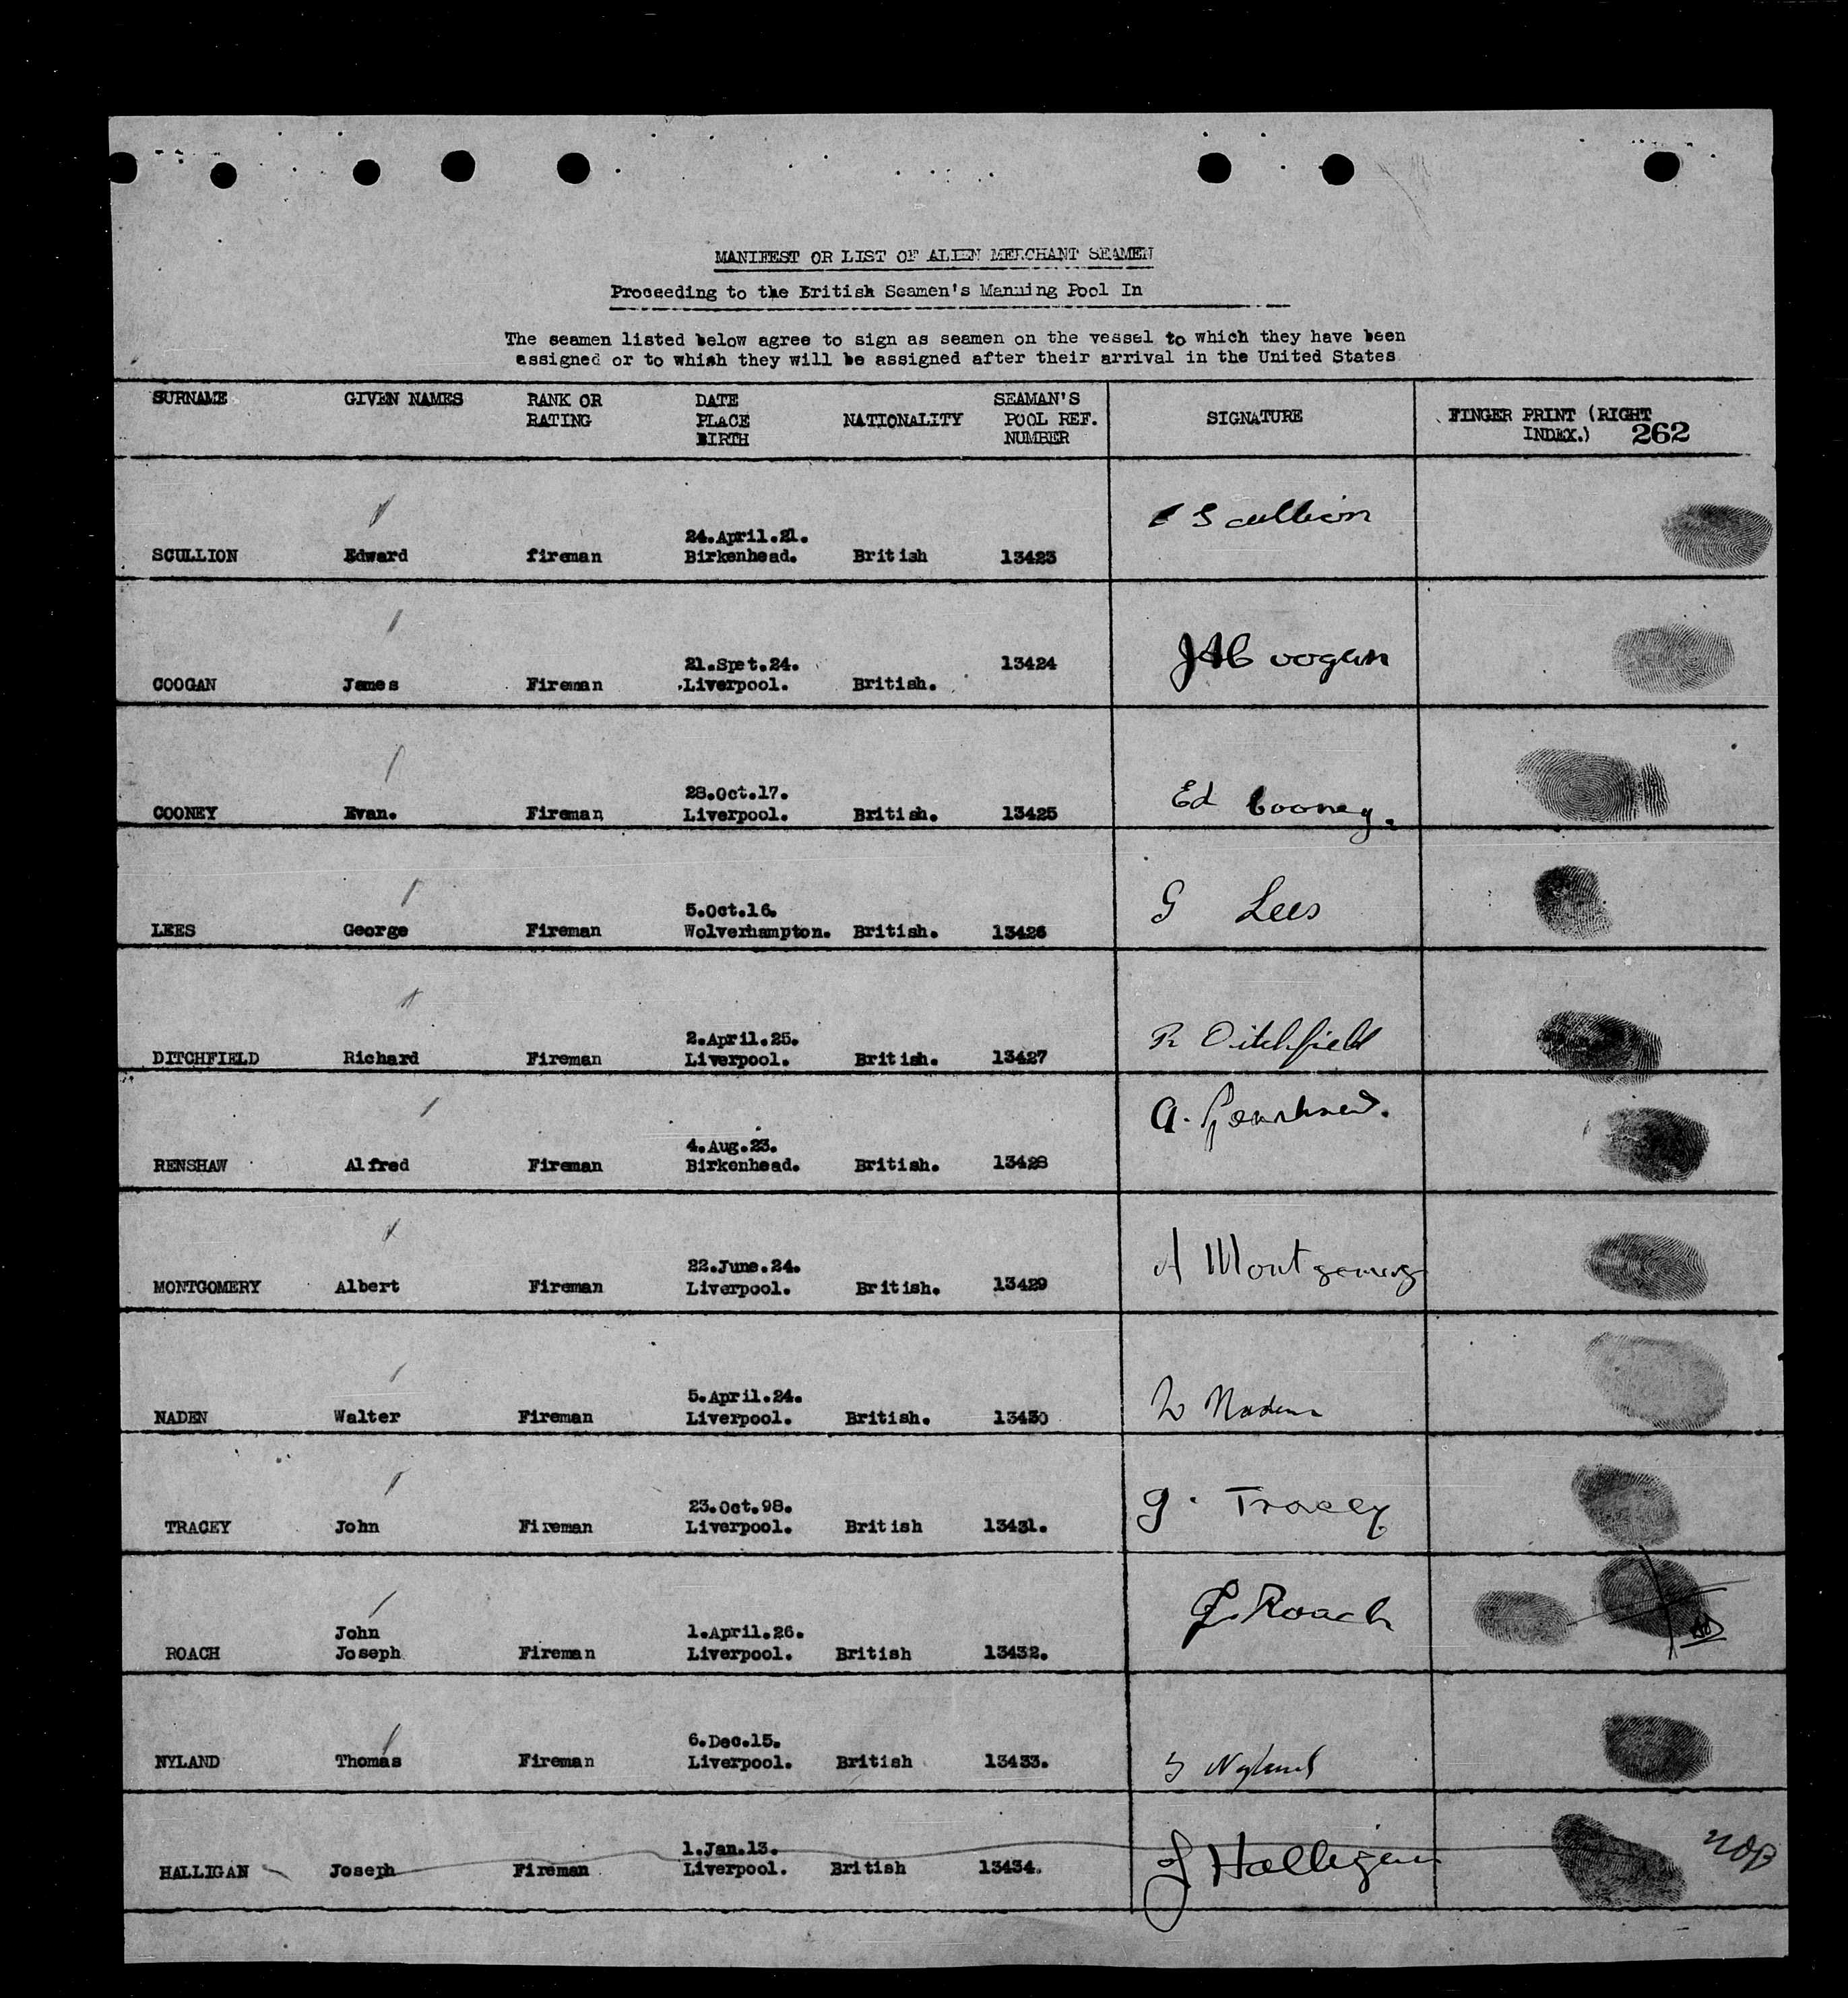 MANIFEST OR LIST OF ALIEN MERCHANT SEAMEN
Proceeding to the British Seamen's Manning Pool In
The seamen listed below agree to sign as seamen on the vessel to which they have been
assigned or to whish they will be assigned after their arrival in the United States
SURNAME GIVEN NAMES RANK OR RATING DATE PLACE BIRTH NATIONALITY SEAMAN'S POOL REF. NUMBER SIGNATURE FINGER PRINT (RIGHT INDEX.) 262
24.April.21.
SCULLION Edward fireman Birkenhead. British 13423 E Scullion
21.Spet.24.
COOGAN James Fireman Liverpool. British. 13424 JA Coogan
28.Oct.17.
COONEY Evan. Fireman Liverpool. British. 13425 Ed Cooney.
5.Oct.16.
LEES George Fireman Wolverhampton. British. 13426 G Lees
2.April.25.
DITCHFIELD Richard Fireman Liverpool. British. 13427 R Ditchfield
4.Aug.23.
RENSHAW Alfred Fireman Birkenhead. British. 13428 A.
22.June.24.
MONTGOMERY Albert Fireman Liverpool. British. 13429 A Montgomery
5.April.24.
NADEN Walter Fireman Liverpool. British. 13430 W Naden
23.Oct.98.
TRACEY John Fireman Liverpool. British 13431. J. Tracey
John 1.April.26.
ROACH Joseph Fireman Liverpool. British 13432. J. Roach
6.Dec.15.
NYLAND Thomas Fireman Liverpool. British 13433. T Nyland
1.Jan.13.
HALLIGAN Joseph Fireman Liverpool. British 13434. J Halligan